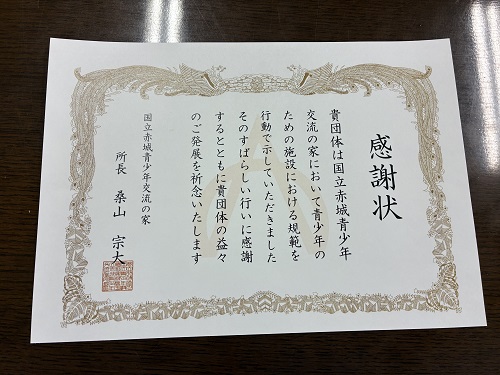 感謝状
貴団体は国立赤城青少年
交流の家において青少年の
ための施設における規範を
行動で示していただきました
そのすばらしい行いに感謝
するとともに貴団体の益々
のご発展を祈念いたします
国立赤城青少年交流の家
所長 桑山 宗大